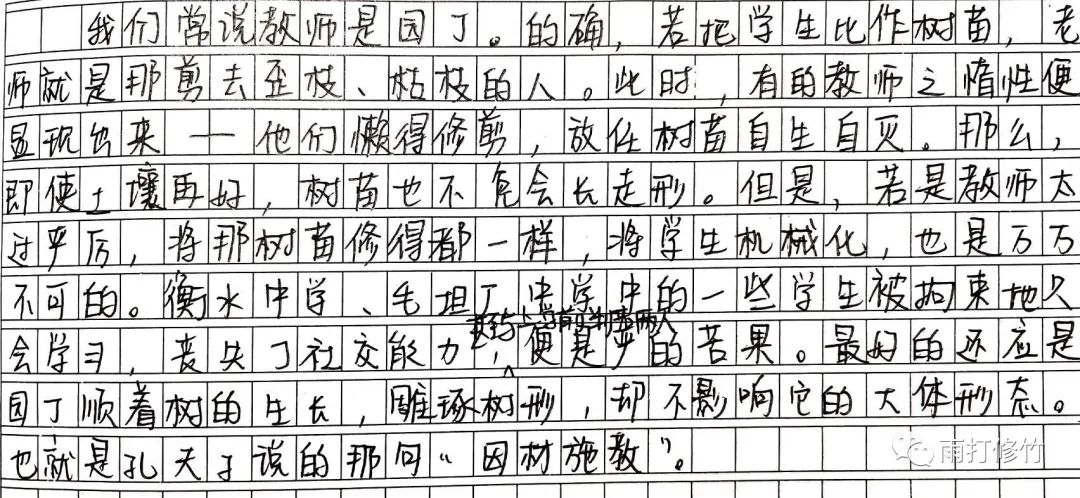 我们常说教师是园丁。的确,若把学生比作树苗,老
师就是那剪去歪枝、枯枝的人。此时,有的教师之惰性便
显现出来——他们懒得修剪,放任树苗自生自灭。那么,
即使土壤再好,树苗也不免会长走形。但是,若是教师太
过严厉,将那树苗修得都一样,将学生机械化,也是万万
不可的。衡水中学、毛坦厂中学中的一些学生被拘束地久
会学习,丧失了社交能力,便是严的苦果。最好的还应是
园丁顺着树的生长,雕琢树形,却不影响它的大体形态。
也就是孔夫子说的那句“因材施教”。
雨打修竹